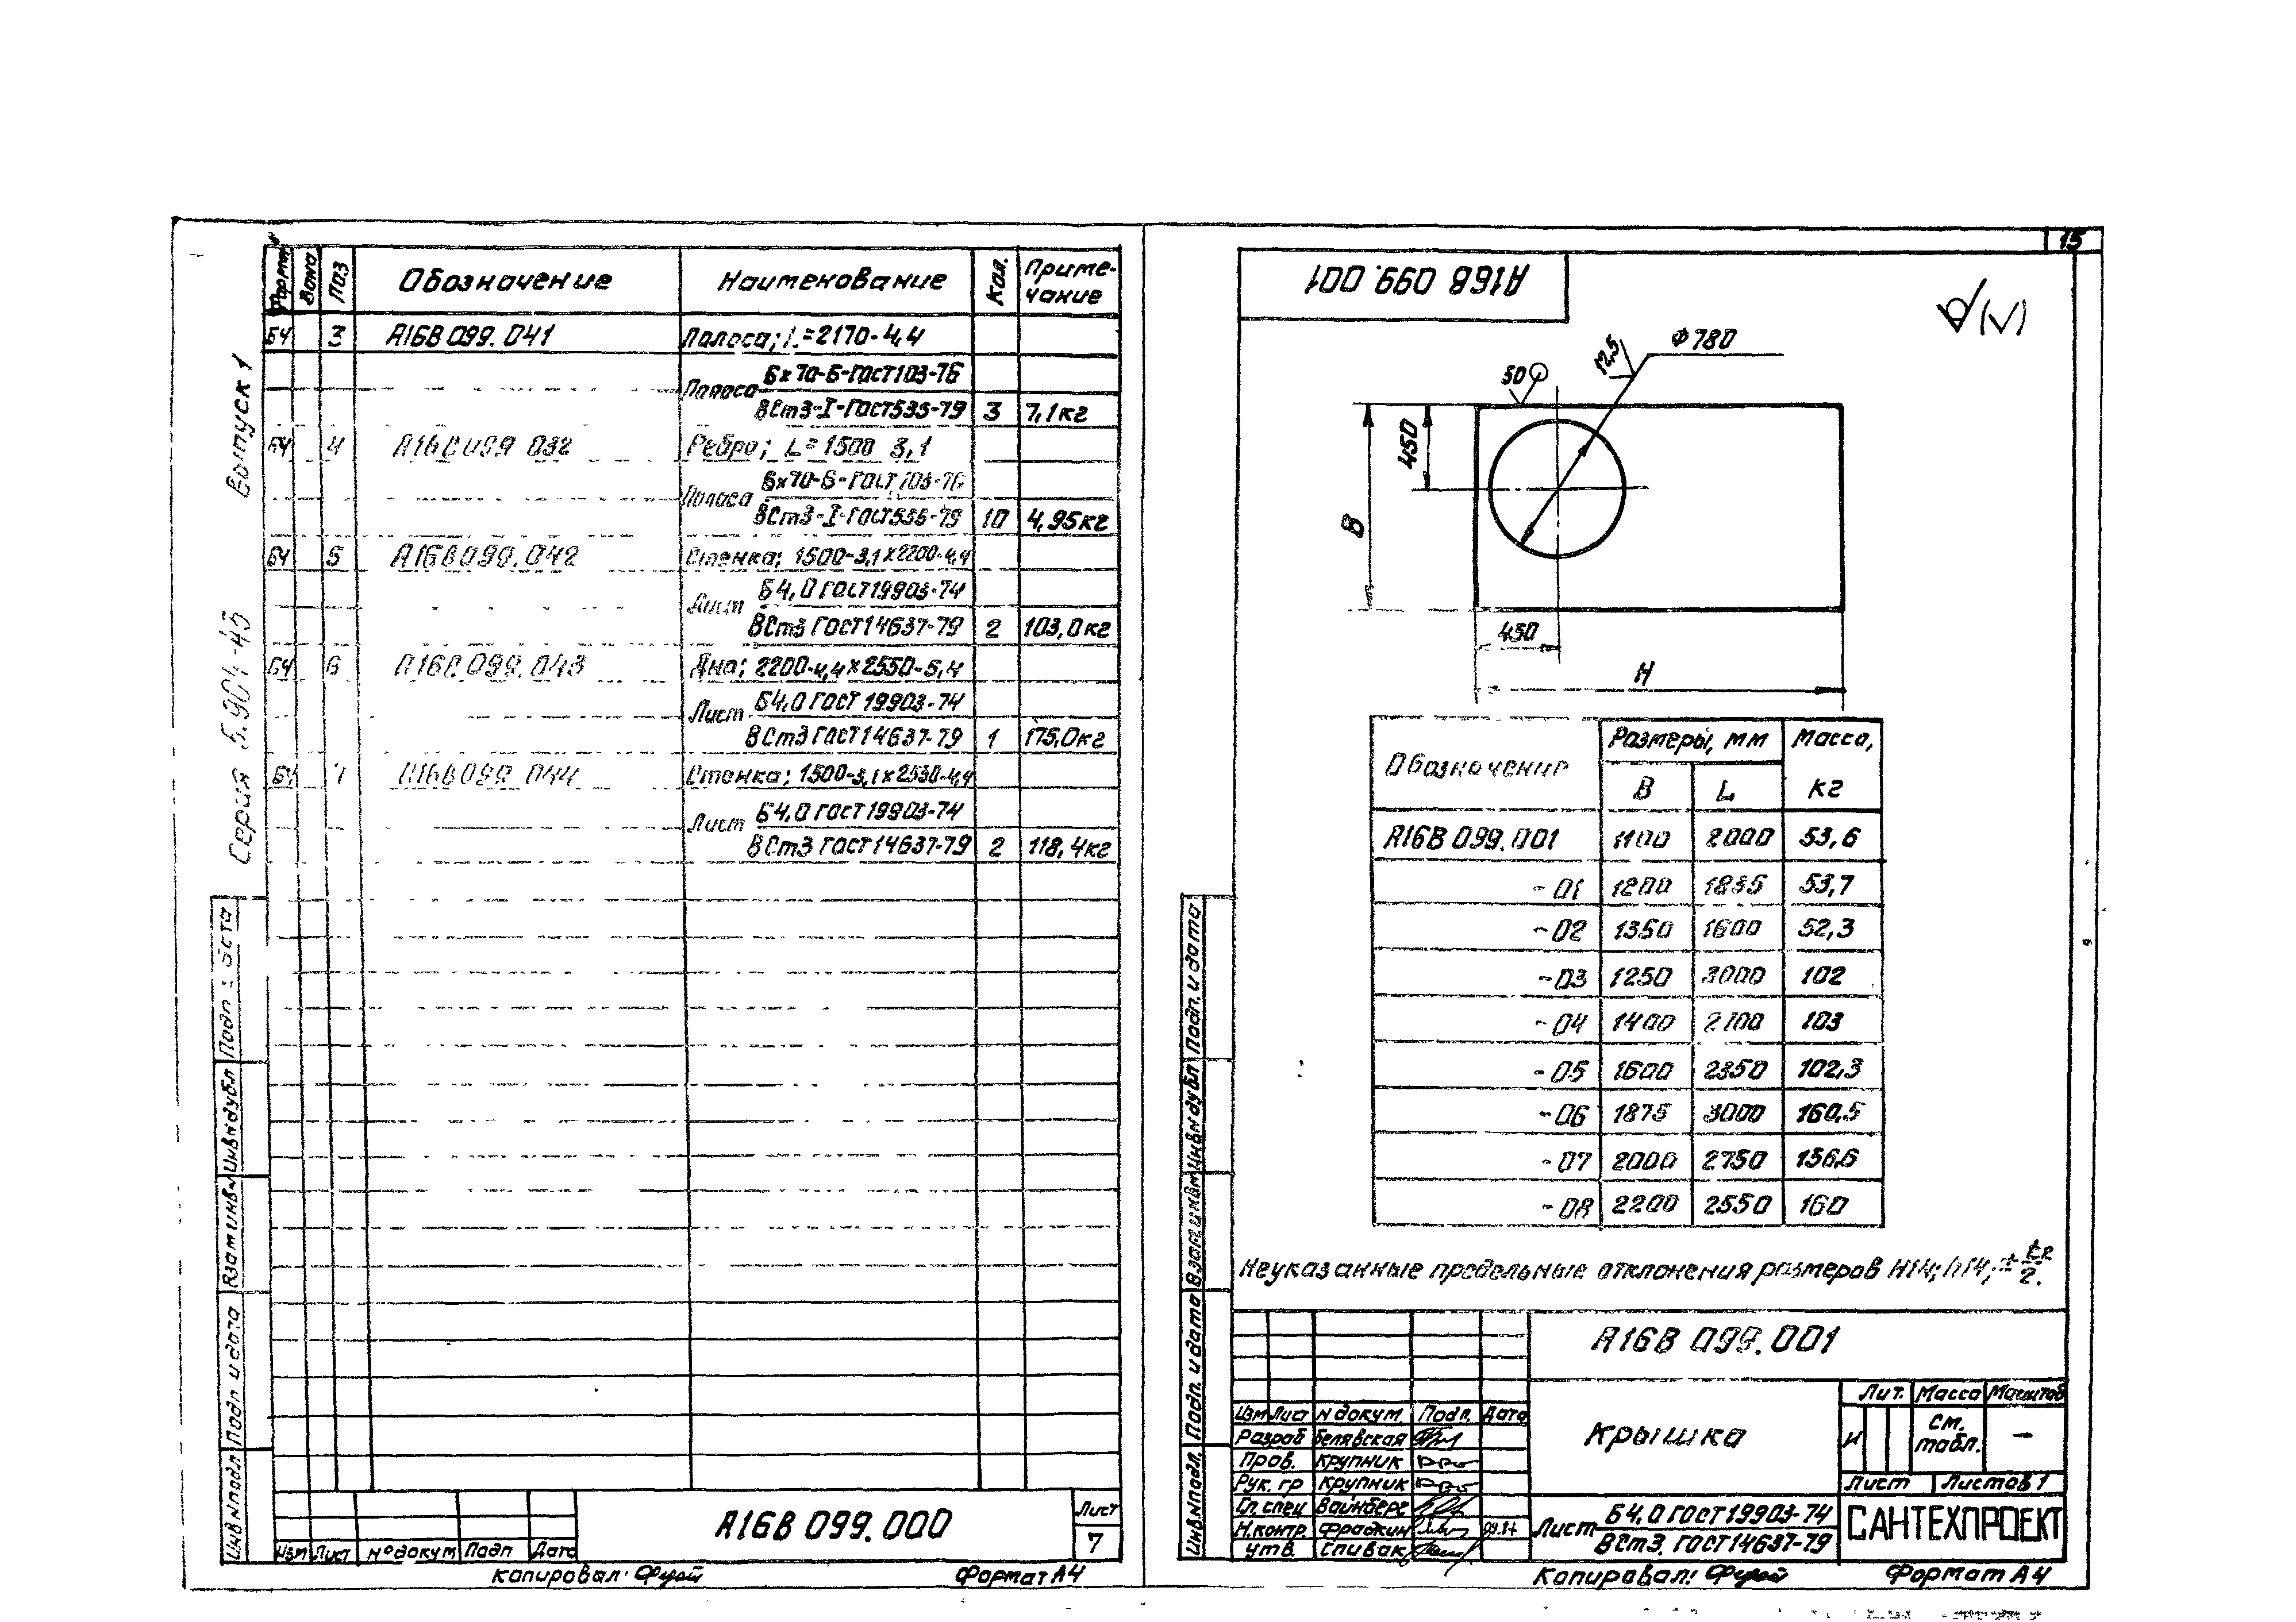 Выпуск 1
Серия 5.904-43
Формат Зона Поз Обозначение Наименование Кол. Приме-
чание
БЧ 3 А16В 099.041 Полоса; L=2170-4,4
Полоса 6х70-Б-ГОСТ103-76
ВСт3-I-ГОСТ535-79 3 7,1кг
БЧ 4 А16В 099 032 Ребро; L=1500 3,1
Полоса 6х70-Б-ГОСТ103-76
ВСт3-I-ГОСТ535-79 10 4,95кг
БЧ 5 А16В099.042 Стенка; 1500-3,1х2200-4,4
Лист Б4,0 ГОСТ19903-74
ВСт3 ГОСТ14637-79 2 103,0кг
БЧ 6 А16В.099.043 Дно; 2200-4,4х2550-5,4
Лист Б4,0 ГОСТ 19903-74
ВСт3 ГОСТ14637-79 1 175,0кг
БЧ 7 А16В099 044 Стенка; 1500-3,1х2530-4,4
Лист Б4,0 ГОСТ19903-74
ВСт3 ГОСТ14637-79 2 118,4кг
Подп и дата
Инв№дубл
Взам инв№
Подп и дата
Инв№подл
Изм Лист №докум Подп Дата
А16В 099.000
Лист
7
Копировал: Формат А4
15
А16В 099.001
√(√)
50
12,5
Ф780
450
В
450
Н
Обозначение Размеры, мм Масса,
кг
В L
А16В 099.001 1100 2000 53,6
-01 1200 1835 53,7
-02 1350 1600 52,3
-03 1250 3000 102
-04 1400 2700 103
-05 1600 2350 102,3
-06 1875 3000 160,5
-07 2000 2750 156,6
-08 2200 2550 160
Неуказанные предельные отклонения размеров Н14; h14; ± t2/2.
Подп. и дата
Инв№дубл
Взам инв№
Подп. и дата
Инв№подл.
А16В 099.001
Крышка
Лит. Масса Масштаб
И См.
табл. —
Лист Листов 1
Изм Лист № докум. Подп. Дата
Разраб Белявская
Пров. Крупник
Рук. гр Крупник
Гл. спец Вайнберг
Н.контр. Фрадкин
Утв. Спивак
Лист Б4,0 ГОСТ19903-74
ВСт3. ГОСТ14637-79
САНТЕХПРОЕКТ
Копировал: Формат А4